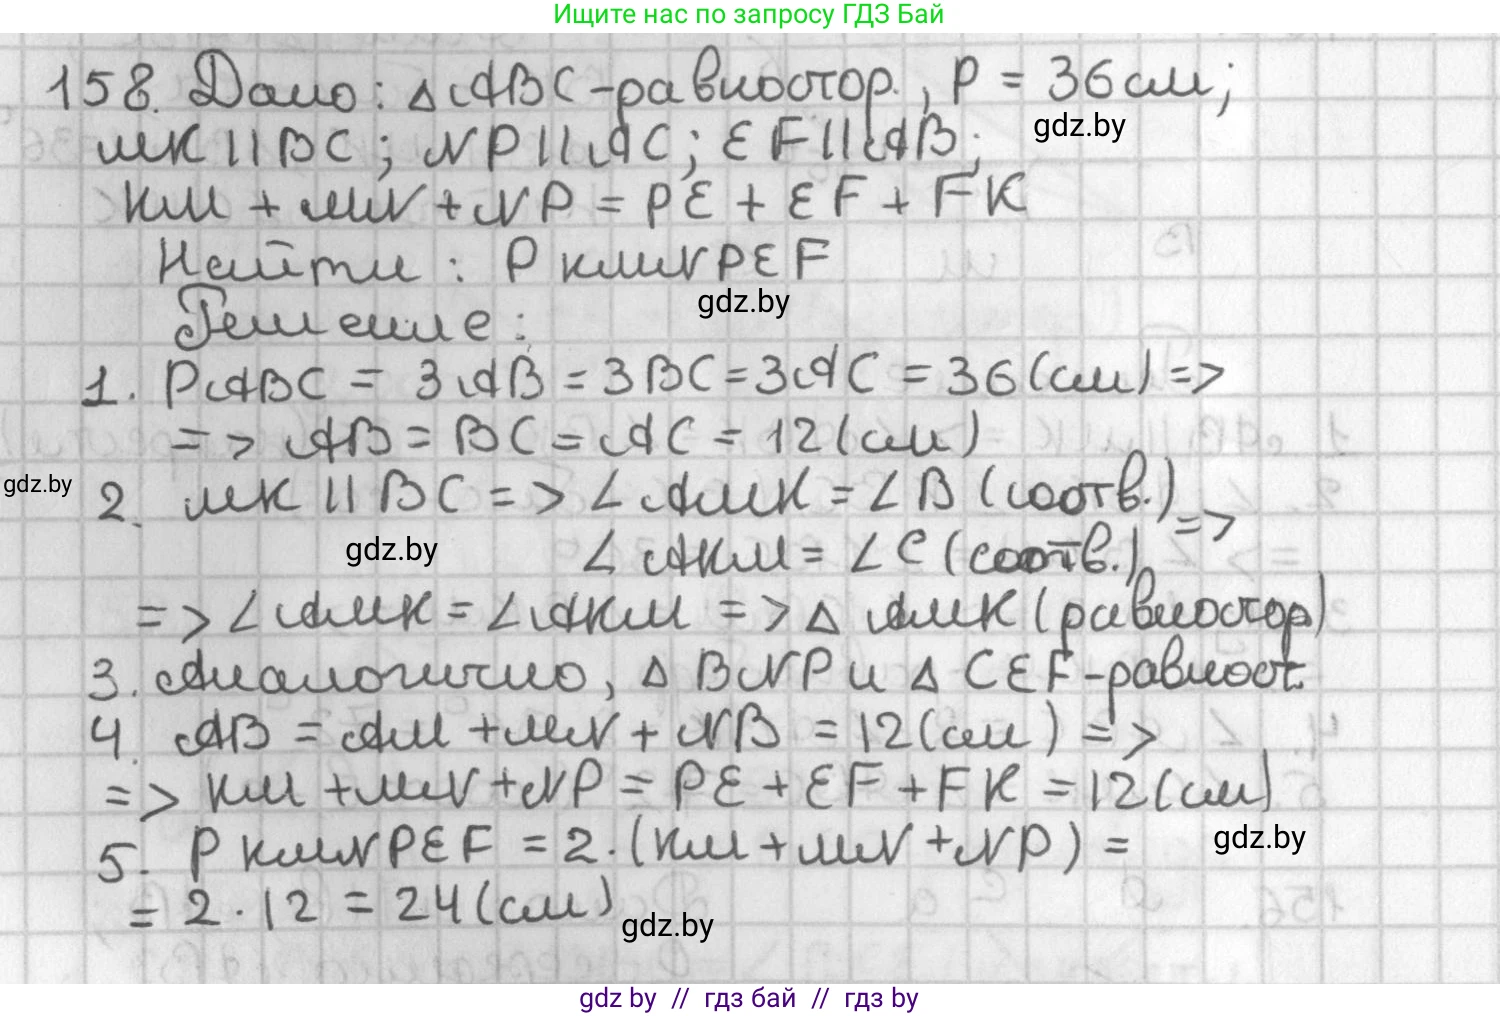 Ищите нас по запросу ГДЗ Бай
158. Дано: △ABC-равностор., P = 36 см;
gdz.by
MK || BC; NP || AC; EF || AB;
KM + MN + NP = PE + EF + FK
Найти: P KMNPEF
gdz.by
Решение:
1. PABC = 3AB = 3BC = 3AC = 36 (см) =>
=> AB = BC = AC = 12 (см)
gdz.by
2. MK || BC => ∠AMK = ∠B (соотв.) =>
gdz.by
∠AKM = ∠C (соотв.)
=> ∠AMK = ∠AKM => △ AMK (равностор)
3. Аналогично, △ BNP и △ CEF-равност.
4. AB = AM + MN + NB = 12 (см) =>
=> KM + MN + NP = PE + EF + FK = 12 (см)
gdz.by
5. P KMNPEF = 2 · (KM + MN + NP) =
= 2 · 12 = 24 (см)
gdz.by
gdz by // гдз бай // гдз by